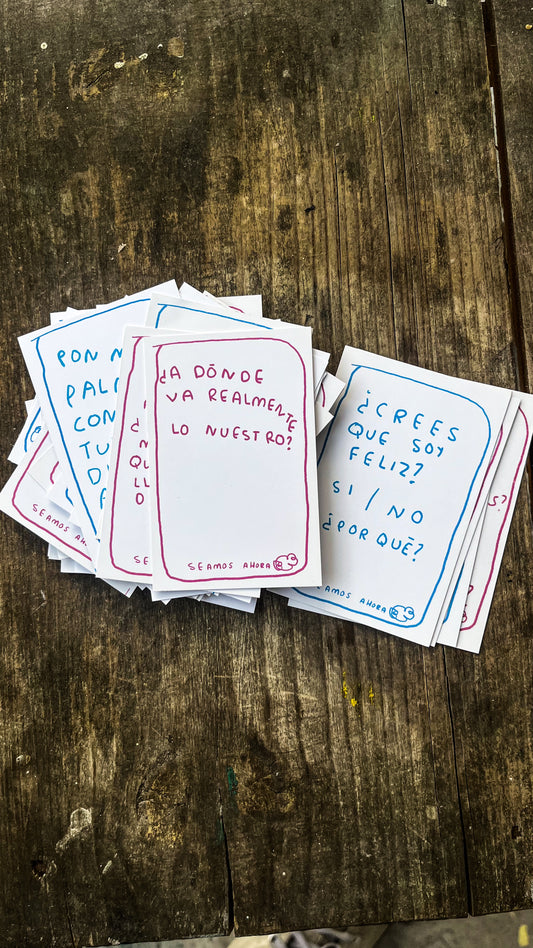 PON
PAL
CON
TU
D
¿
M
QU
LL
D
SEAMOS
SE
¿A DÓNDE
VA REALMENTE
LO NUESTRO?
SEAMOS AHORA
¿CREES
QUE SOY
FELIZ?
SI / NO
¿POR QUÉ?
AMOS AHORA
S?